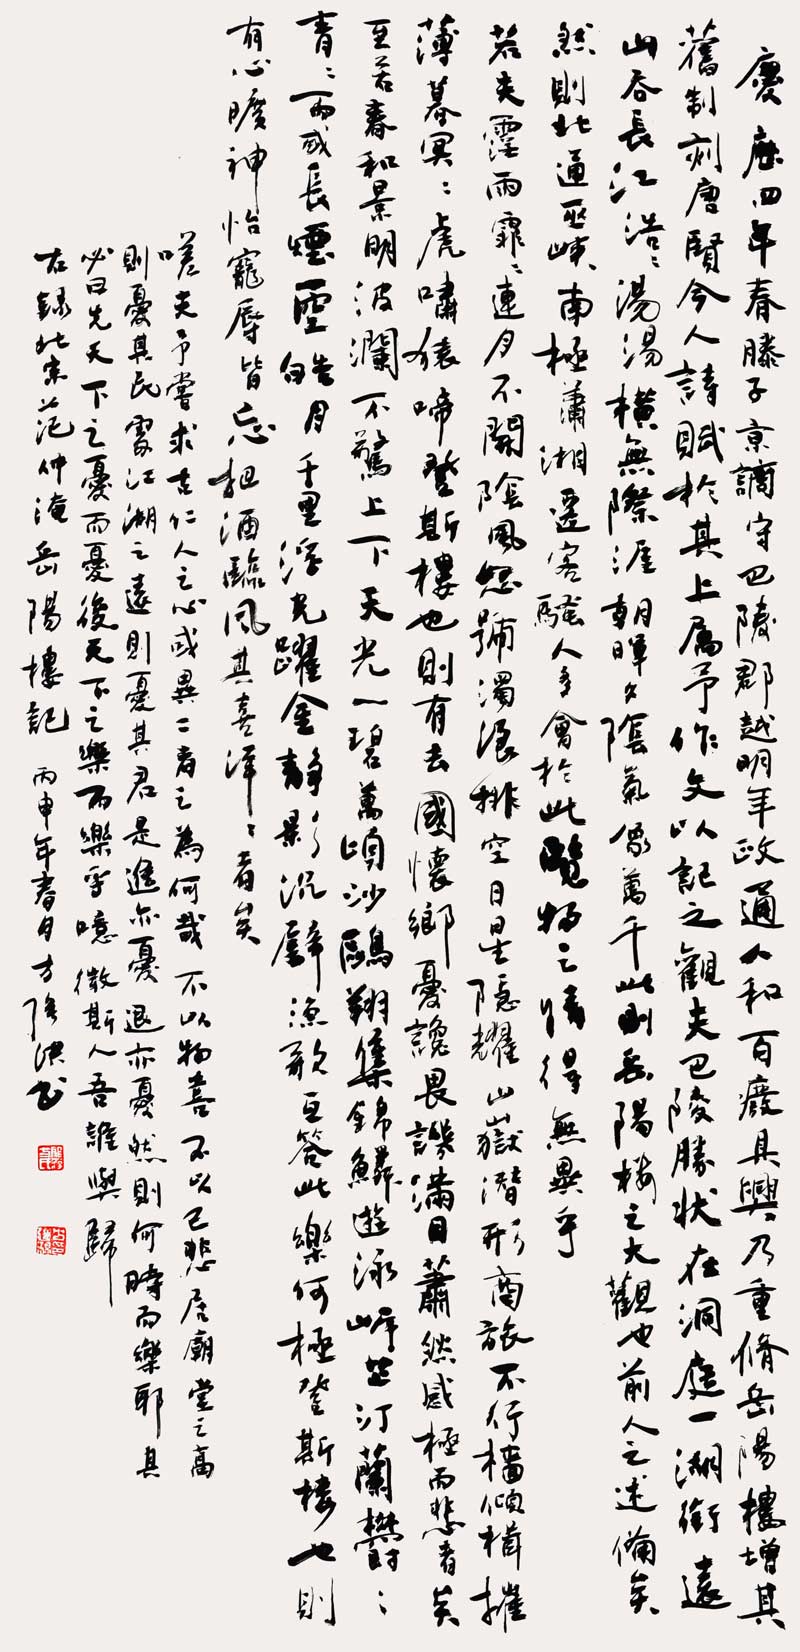 慶歷四年春滕子京謫守巴陵郡越明年政通人和百廢具興乃重脩岳陽樓增其
舊制刻唐賢今人詩賦於其上屬予作文以記之觀夫巴陵勝狀在洞庭一湖銜遠
山吞長江浩〻湯湯橫無際涯朝暉夕陰氣象萬千此則岳陽樓之大觀也前人之述備矣
然則北通巫峽南極瀟湘遷客騷人多會於此覽物之情得無異乎
若夫霪雨霏〻連月不開陰風怒號濁浪排空日星隱耀山嶽潛形商旅不行檣傾楫摧
薄暮冥〻虎嘯猿啼登斯樓也則有去國懷鄉憂讒畏譏滿目蕭然感極而悲者矣
至若春和景明波瀾不驚上下天光一碧萬頃沙鷗翔集錦鱗遊泳岸芷汀蘭鬱〻
青〻而或長煙一空皓月千里浮光躍金靜影沉璧漁歌互答此樂何極登斯樓也則
有心曠神怡寵辱皆忘把酒臨風其喜洋〻者矣
嗟夫予嘗求古仁人之心或異二者之為何哉不以物喜不以己悲居廟堂之高
則憂其民處江湖之遠則憂其君是進亦憂退亦憂然則何時而樂耶其
必曰先天下之憂而憂後天下之樂而樂乎噫微斯人吾誰與歸
右錄北宋范仲淹岳陽樓記 丙申年春月方隆洪書